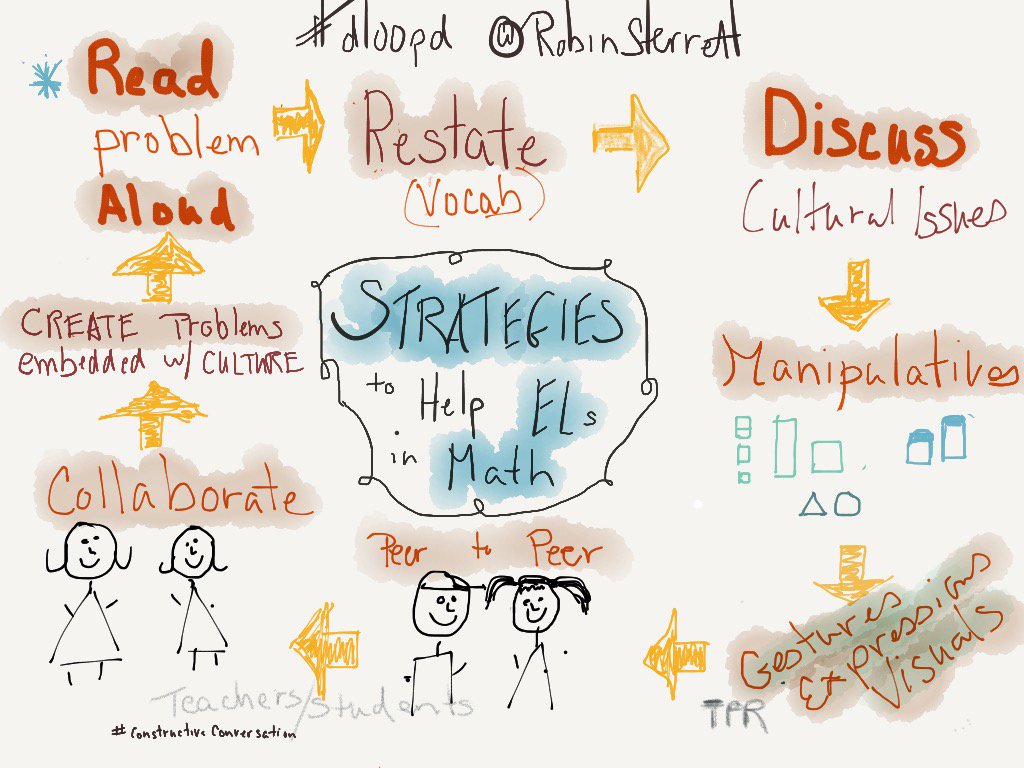 #dloopd @RobinSterrett
* Read
problem
Aloud
Restate
(Vocab)
Discuss
Cultural Issues
Manipulatives
Gestures
Expressions
Visuals
TPR
Peer to Peer
Teachers/Students
Collaborate
#Constructive Conversation
CREATE Problems
embedded w/ CULTURE
STRATEGIES
to Help ELs
in Math